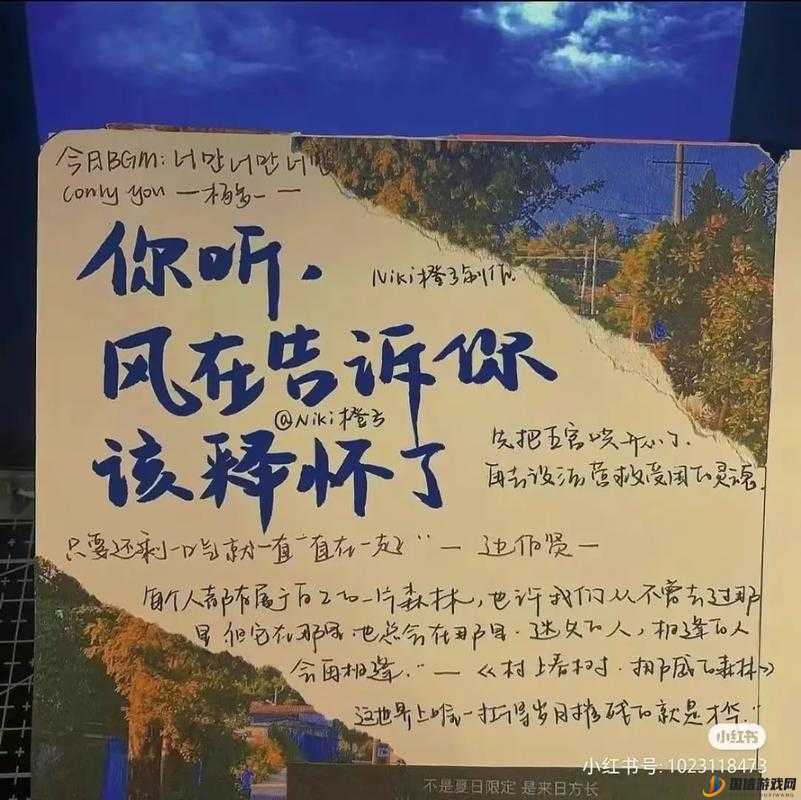 今日BGM: 너만 너만 너만
(only you — 杨多一 —
你听,
Niki橙子制作
风在告诉你
@Niki橙子
该释怀了
先把五官哄开心了.
再去设法营救受困的灵魂.
只要还剩一口气就一直一直在一起" — 边伯贤 —
每个人都有属于自己的一片森林,也许我们从不曾去过那
里但它在那里.也总会在那里.迷失的人,相逢的人
会再相逢." — 《村上春树.挪威的森林》
这世界上唯一扛得岁月摧残的就是才华."
小红书
小红书号: 1023118473
不是夏日限定 是来日方长
国信游戏网